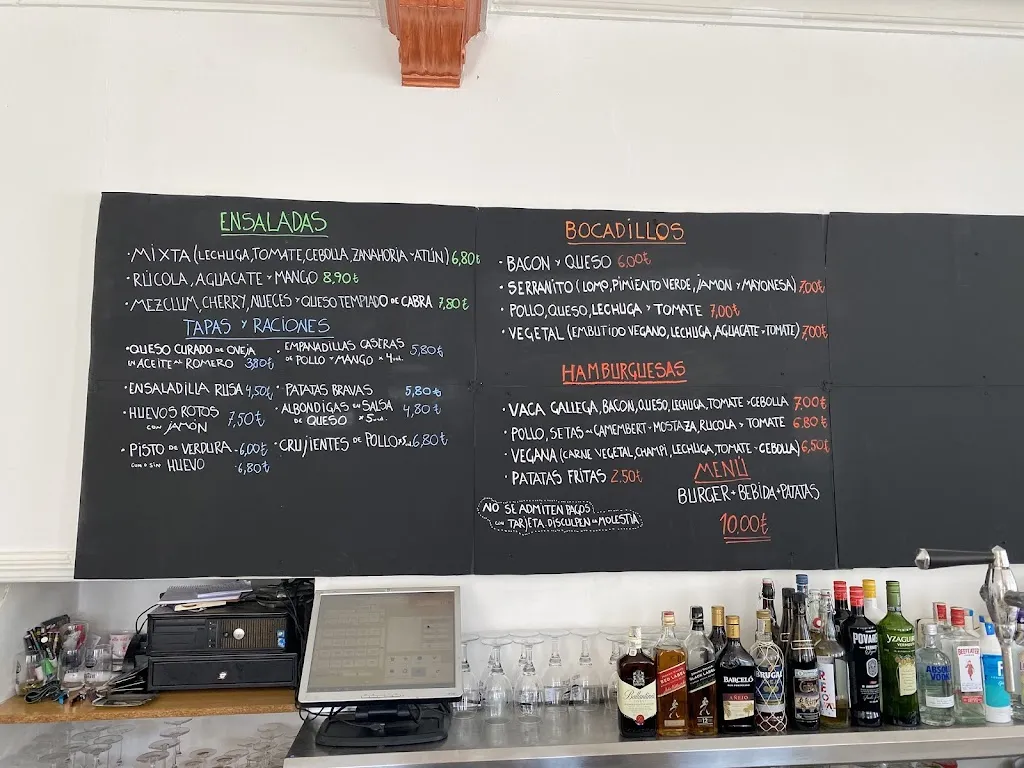 ENSALADAS
· MIXTA (LECHUGA, TOMATE, CEBOLLA, ZANAHORIA Y ATÚN) 6,80€
· RÚCOLA, AGUACATE Y MANGO 8,90€
· MEZCLUM, CHERRY, NUECES Y QUESO TEMPLADO DE CABRA 7,80€
TAPAS Y RACIONES
· QUESO CURADO DE OVEJA
EN ACEITE AL ROMERO 3,80€
· ENSALADILLA RUSA 4,50€
· HUEVOS ROTOS
CON JAMÓN 7,50€
· PISTO DE VERDURA - 6,00€
CON O SIN HUEVO - 6,80€
· EMPANADILLAS CASERAS
DE POLLO Y MANGO x 4 ud. 5,80€
· PATATAS BRAVAS 5,80€
· ALBONDIGAS EN SALSA
DE QUESO x 5 ud. 4,80€
· CRUJIENTES DE POLLO x 5 ud 6,80€
BOCADILLOS
· BACON Y QUESO 6,00€
· SERRANITO (LOMO, PIMIENTO VERDE, JAMON Y MAYONESA) 7,00€
· POLLO, QUESO, LECHUGA Y TOMATE 7,00€
· VEGETAL (EMBUTIDO VEGANO, LECHUGA, AGUACATE Y TOMATE) 7,00€
HAMBURGUESAS
· VACA GALLEGA, BACON, QUESO, LECHUGA, TOMATE Y CEBOLLA 7,00€
· POLLO, SETAS AL CAMEMBERT - MOSTAZA, RUCOLA Y TOMATE 6,80€
· VEGANA (CARNE VEGETAL, CHAMPI, LECHUGA, TOMATE Y CEBOLLA) 6,50€
· PATATAS FRITAS 2,50€
MENÚ
BURGER + BEBIDA + PATATAS
10,00€
NO SE ADMITEN PAGOS
CON TARJETA, DISCULPEN LA MOLESTIA
Ballantine's
RED LABEL
BLACK LABEL
12
BARCELÓ
AÑEJO
BRUGAL
YZAGUIRRE
ABSOLUT
VODKA
BEEFEATER